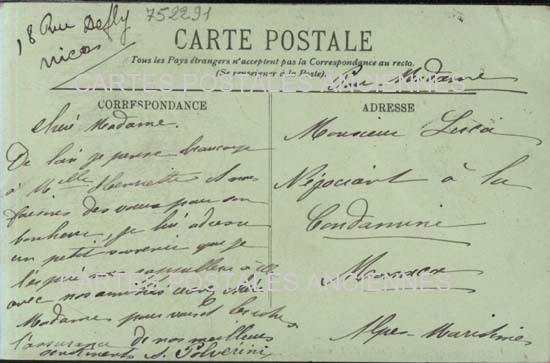 18 Rue Defly
Nice
752291
CARTE POSTALE
Tous les Pays étrangers n'acceptent pas la Correspondance au recto.
(Se renseigner à la Poste).
CARTES POSTALES ANCIENNES
Pour Madame
CORRESPONDANCE
ADRESSE
Chère Madame.
De loin je pense beaucoup
à Melle Henriette
faisons des vœux pour son
bonheur, je lui adresse
un petit souvenir que je
avec nos amitiés
Madame pour vous
l'assurance de nos meilleurs
sentiments A. Polverini
Monsieur Luca
Négociant à la
Condamine
Monaco
Alpes-Maritimes
CARTES POSTALES ANCIENNES